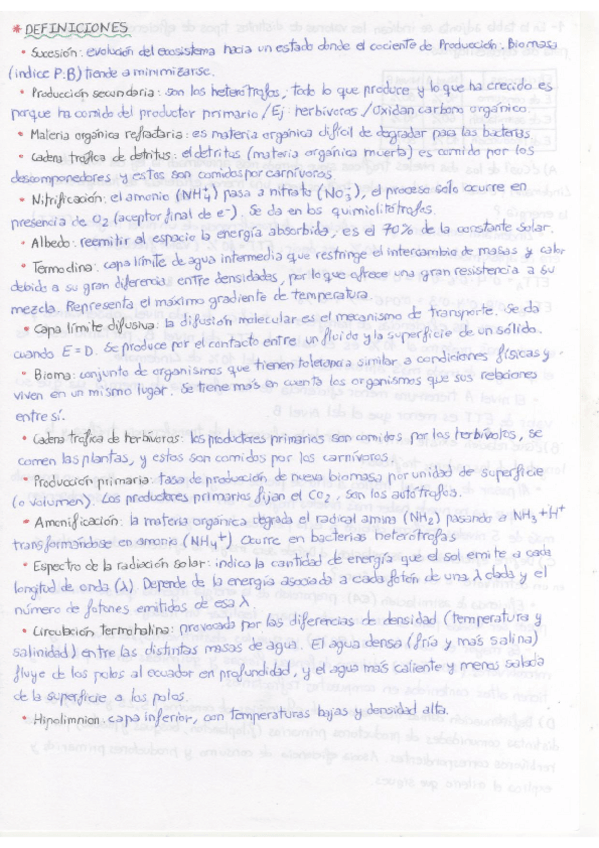 * DEFINICIONES
• Sucesión: evolución del ecosistema hacia un estado donde el cociente de Producción:Biomasa
(índice P:B) tiende a minimizarse.
• Producción secundaria: son los heterótrofos, todo lo que produce y lo que ha crecido es
porque ha comido del productor primario / Ej: herbívoros / Oxidan carbono orgánico.
• Materia orgánica refractaria: es materia orgánica difícil de degradar para las bacterias.
• Cadena trófica de detritus: el detritus (materia orgánica muerta) es comida por los
descomponedores y estos son comidos por carnívoros.
• Nitrificación: el amonio (NH4+) pasa a nitrato (NO3-), el proceso sólo ocurre en
presencia de O2 (aceptor final de e-). Se da en los quimiolitótrofos.
• Albedo: reemitir al espacio la energía absorbida, es el 70% de la constante solar.
• Termoclina: capa límite de agua intermedia que restringe el intercambio de masas y calor
debido a su gran diferencia entre densidades, por lo que ofrece una gran resistencia a su
mezcla. Representa el máximo gradiente de temperatura.
• Capa límite difusiva: la difusión molecular es el mecanismo de transporte. Se da
cuando E=D. Se produce por el contacto entre un fluido y la superficie de un sólido.
• Bioma: conjunto de organismos que tienen tolerancia similar a condiciones físicas y
viven en un mismo lugar. Se tiene más en cuenta los organismos que sus relaciones
entre sí.
• Cadena trófica de herbívoros: los productores primarios son comidos por los herbívoros, se
comen las plantas, y estos son comidos por los carnívoros.
• Producción primaria: tasa de producción de nueva biomasa por unidad de superficie
(o volumen). Los productores primarios fijan el CO2, son los autótrofos.
• Amonificación: la materia orgánica degrada el radical amina (NH2) pasando a NH3 + H+
transformándose en amonio (NH4+) Ocurre en bacterias heterótrofas.
• Espectro de la radiación solar: indica la cantidad de energía que el sol emite a cada
longitud de onda (λ) Depende de la energía asociada a cada fotón de una λ dada y el
número de fotones emitidos de esa λ
• Circulación termohalina: provocada por las diferencias de densidad (temperatura y
salinidad) entre las distintas masas de agua. El agua densa (fría y más salina)
fluye de los polos al ecuador en profundidad, y el agua más caliente y menos salada
de la superficie a los polos.
• Hipolimnion: capa inferior, con temperaturas bajas y densidad alta.